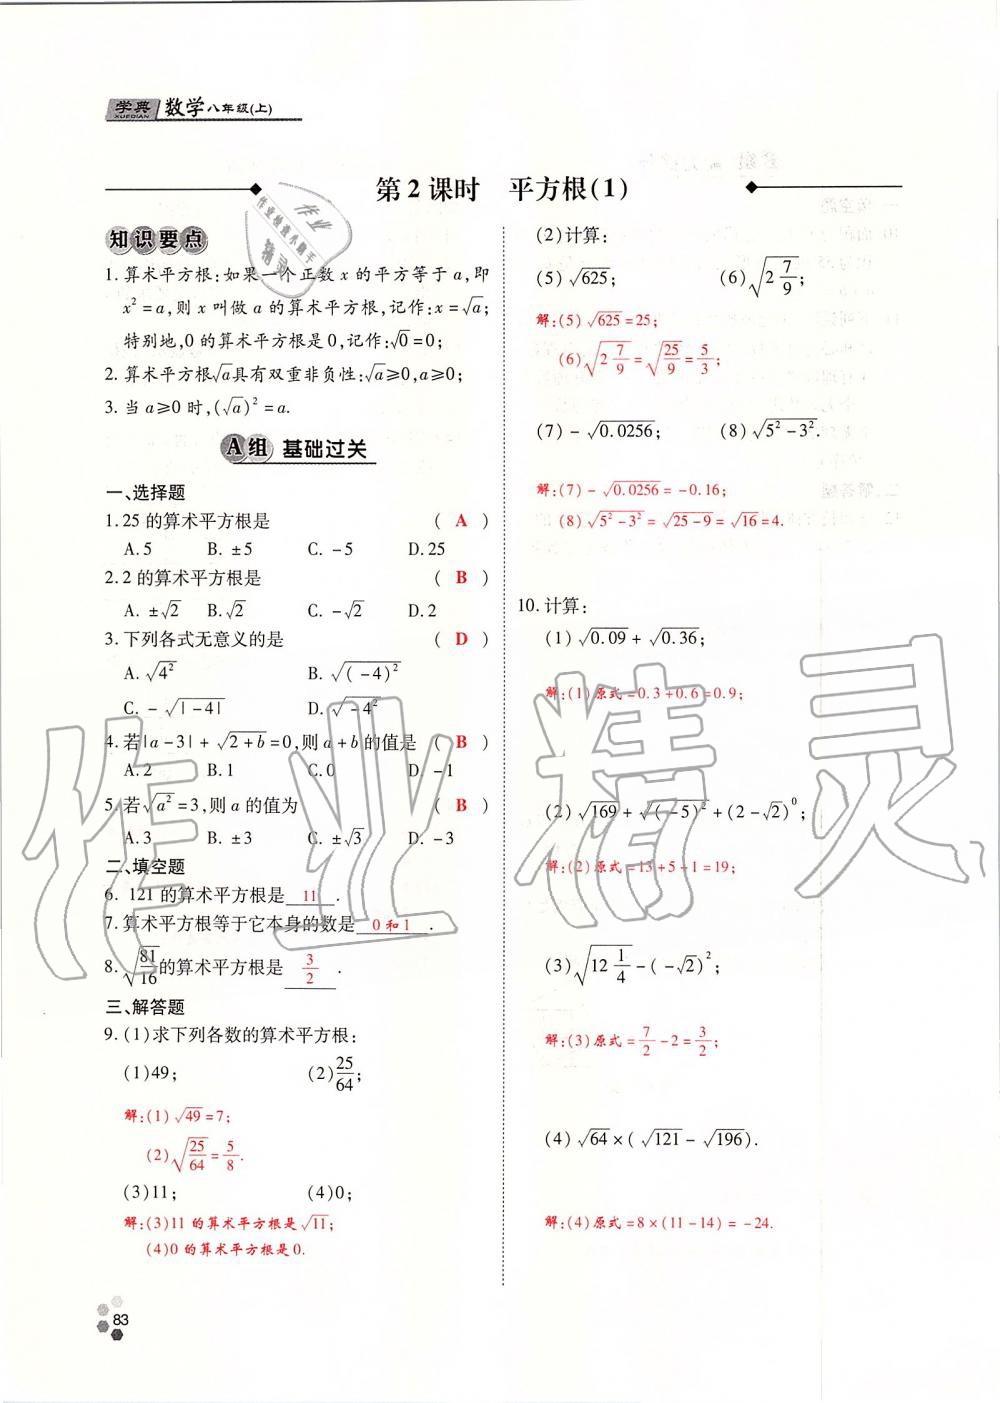 学典 XUEDIAN 数学八年级(上)
第2课时 平方根(1)
知识要点
1. 算术平方根:如果一个正数 x 的平方等于 a,即
x²=a,则 x 叫做 a 的算术平方根,记作:x=√a;
特别地,0 的算术平方根是 0,记作:√0=0;
2. 算术平方根√a具有双重非负性:√a≥0,a≥0;
3. 当 a≥0 时,(√a)²=a.
A组 基础过关
一、选择题
1. 25 的算术平方根是 ( A )
A. 5 B. ±5 C. -5 D. 25
2. 2 的算术平方根是 ( B )
A. ±√2 B. √2 C. -√2 D. 2
3. 下列各式无意义的是 ( D )
A. √4² B. √(-4)²
C. -√|-4| D. √-4²
4. 若|a-3|+√2+b=0,则 a+b 的值是 ( B )
A. 2 B. 1 C. 0 D. -1
5. 若√a²=3,则 a 的值为 ( B )
A. 3 B. ±3 C. ±√3 D. -3
二、填空题
6. 121 的算术平方根是 11 .
7. 算术平方根等于它本身的数是 0 和 1 .
8. √81/16的算术平方根是 3/2 .
三、解答题
9. (1)求下列各数的算术平方根:
(1)49; (2)25/64;
解:(1)√49=7;
(2)√25/64=5/8.
(3)11; (4)0;
解:(3)11 的算术平方根是√11;
(4)0 的算术平方根是 0.
83
(2)计算:
(5)√625; (6)√2 7/9;
解:(5)√625=25;
(6)√2 7/9=√25/9=5/3;
(7)-√0.0256; (8)√5²-3².
解:(7)-√0.0256=-0.16;
(8)√5²-3²=√25-9=√16=4.
10. 计算:
(1)√0.09+√0.36;
解:(1)原式=0.3+0.6=0.9;
(2)√169+√(-5)²+(2-√2)⁰;
解:(2)原式=13+5+1=19;
(3)√12 1/4-(-√2)²;
解:(3)原式=7/2-2=3/2;
(4)√64×(√121-√196).
解:(4)原式=8×(11-14)=-24.
作业精灵
作业检查小助手
作业
精灵